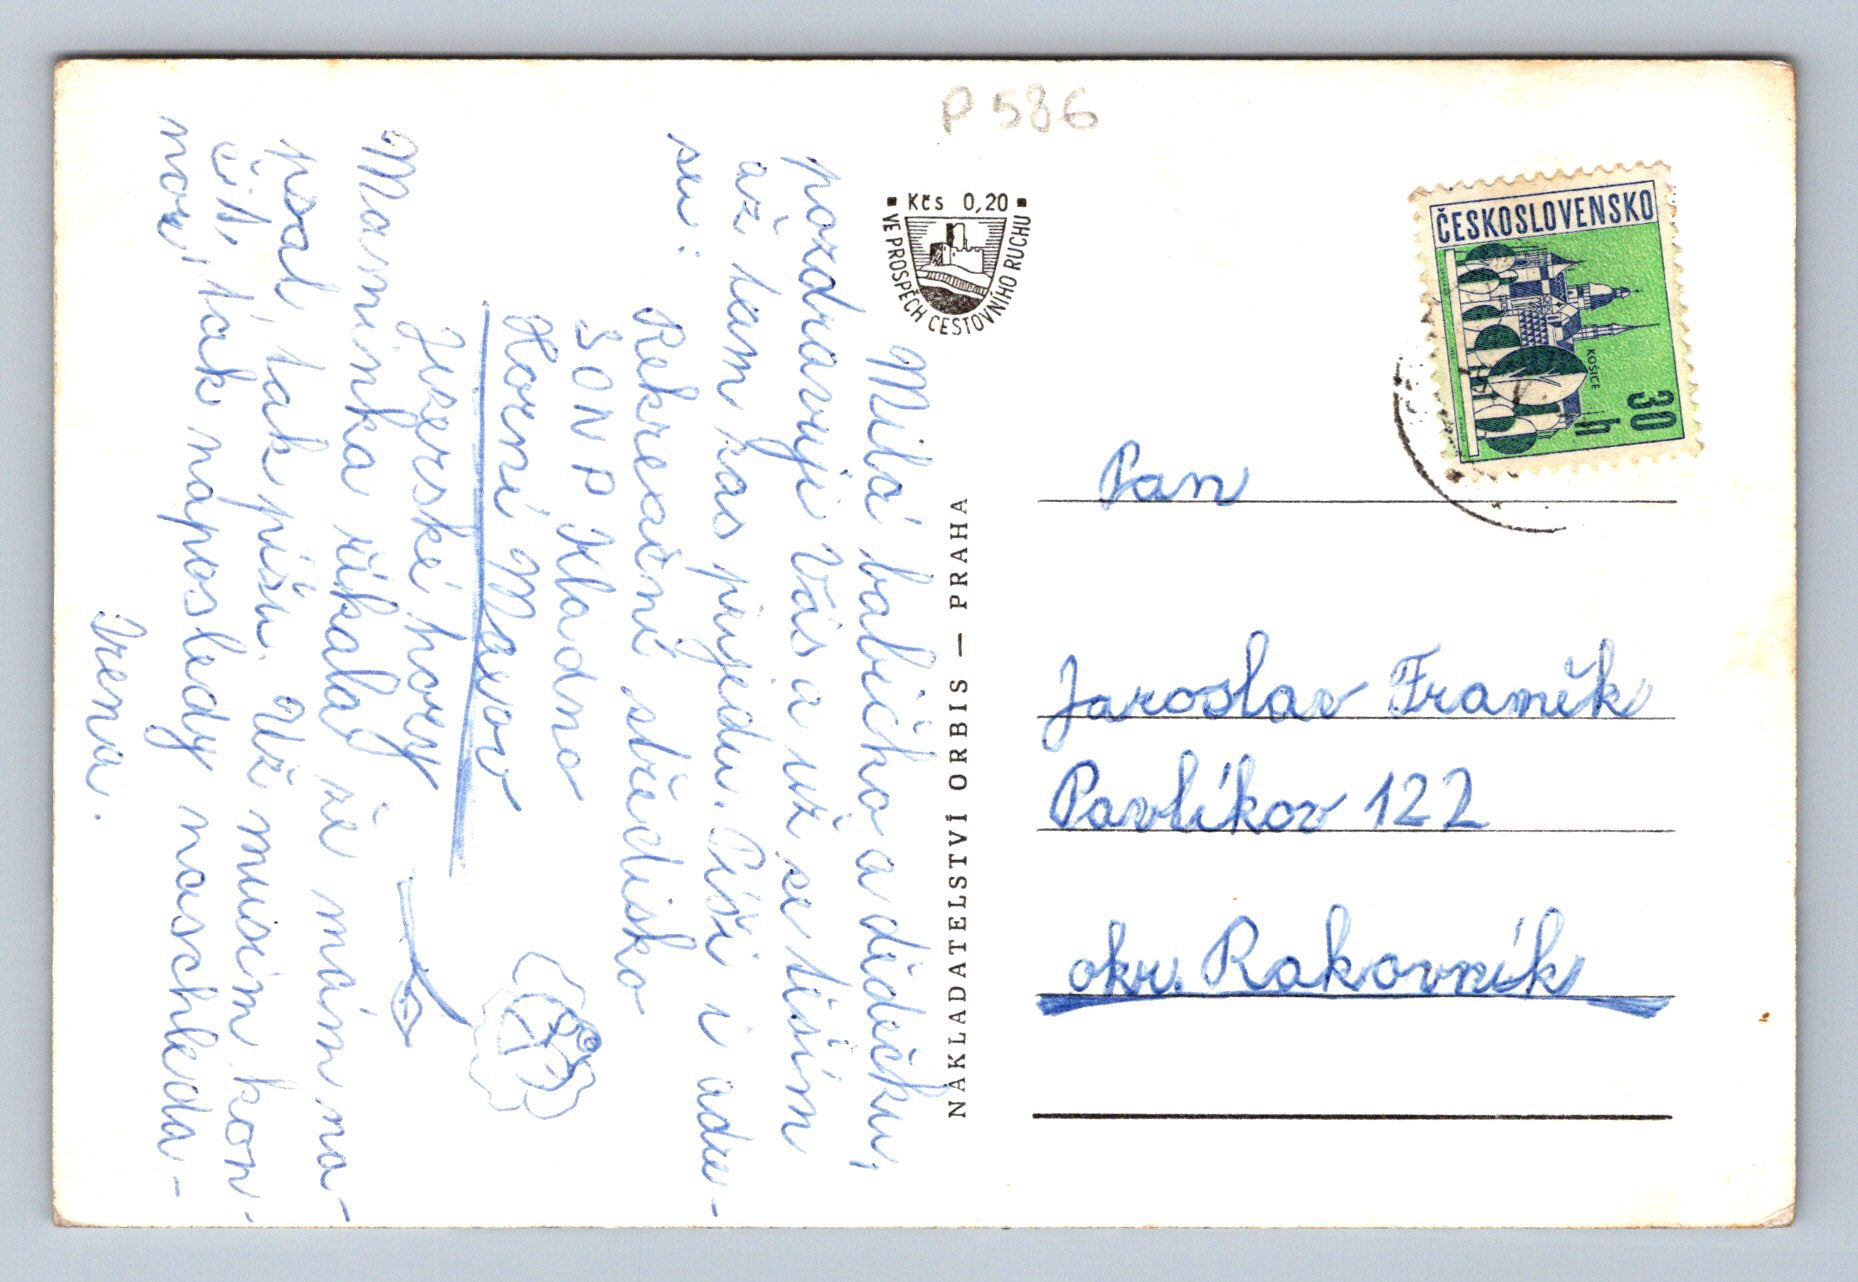 P 586
Kčs 0,20
VE PROSPĚCH CESTOVNÍHO RUCHU
ČESKOSLOVENSKO
KOŠICE
30 h
Milá babičko a dědečku,
pozdravuji Vás a už se těším
až tam k Vás přijedu. Píši i adre-
su:
Rekreační středisko
SONP Kladno
Horní Maxov
Jizerské hory
Maminka říkala, že mám na-
psat, tak píšu. Už musím kon-
čit, tak naposledy naschleda-
nou,
Irena.
NAKLADATELSTVÍ ORBIS — PRAHA
Pan
Jaroslav Franěk
Pavlíkov 122
okr. Rakovník